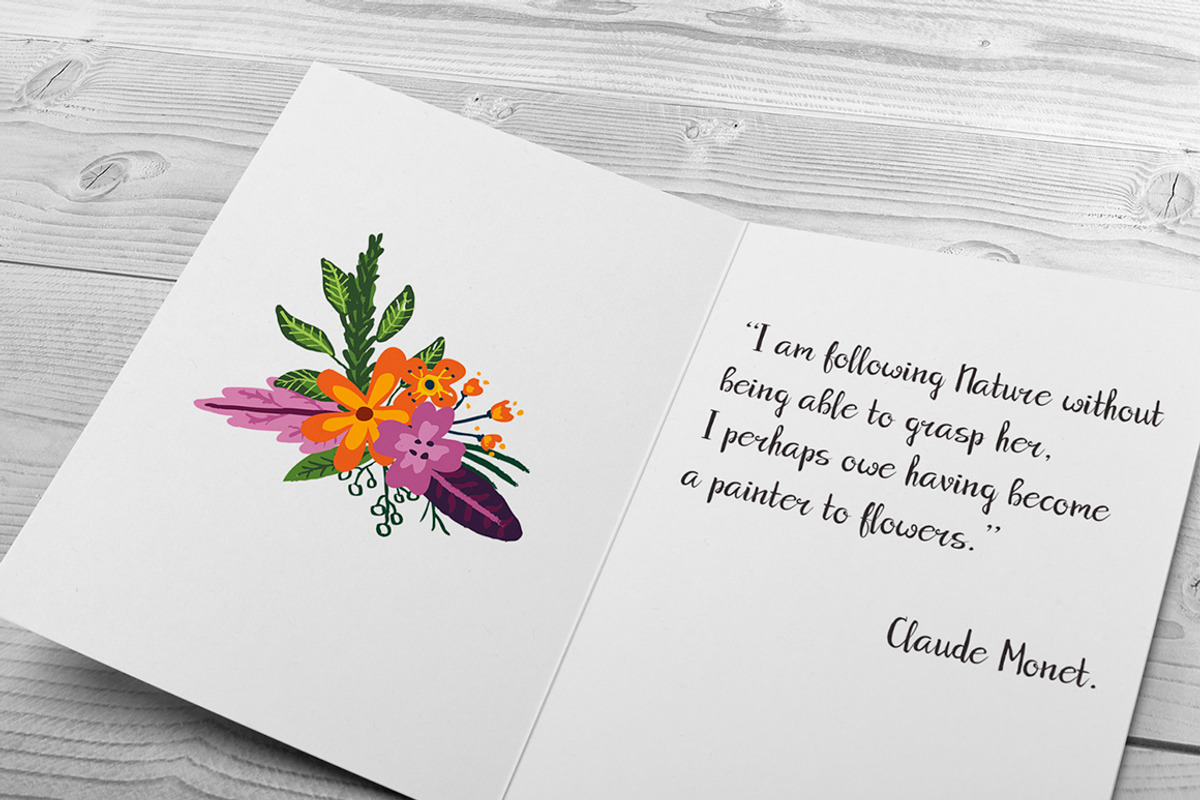 “I am following Nature without
being able to grasp her,
I perhaps owe having become
a painter to flowers.”
Claude Monet.